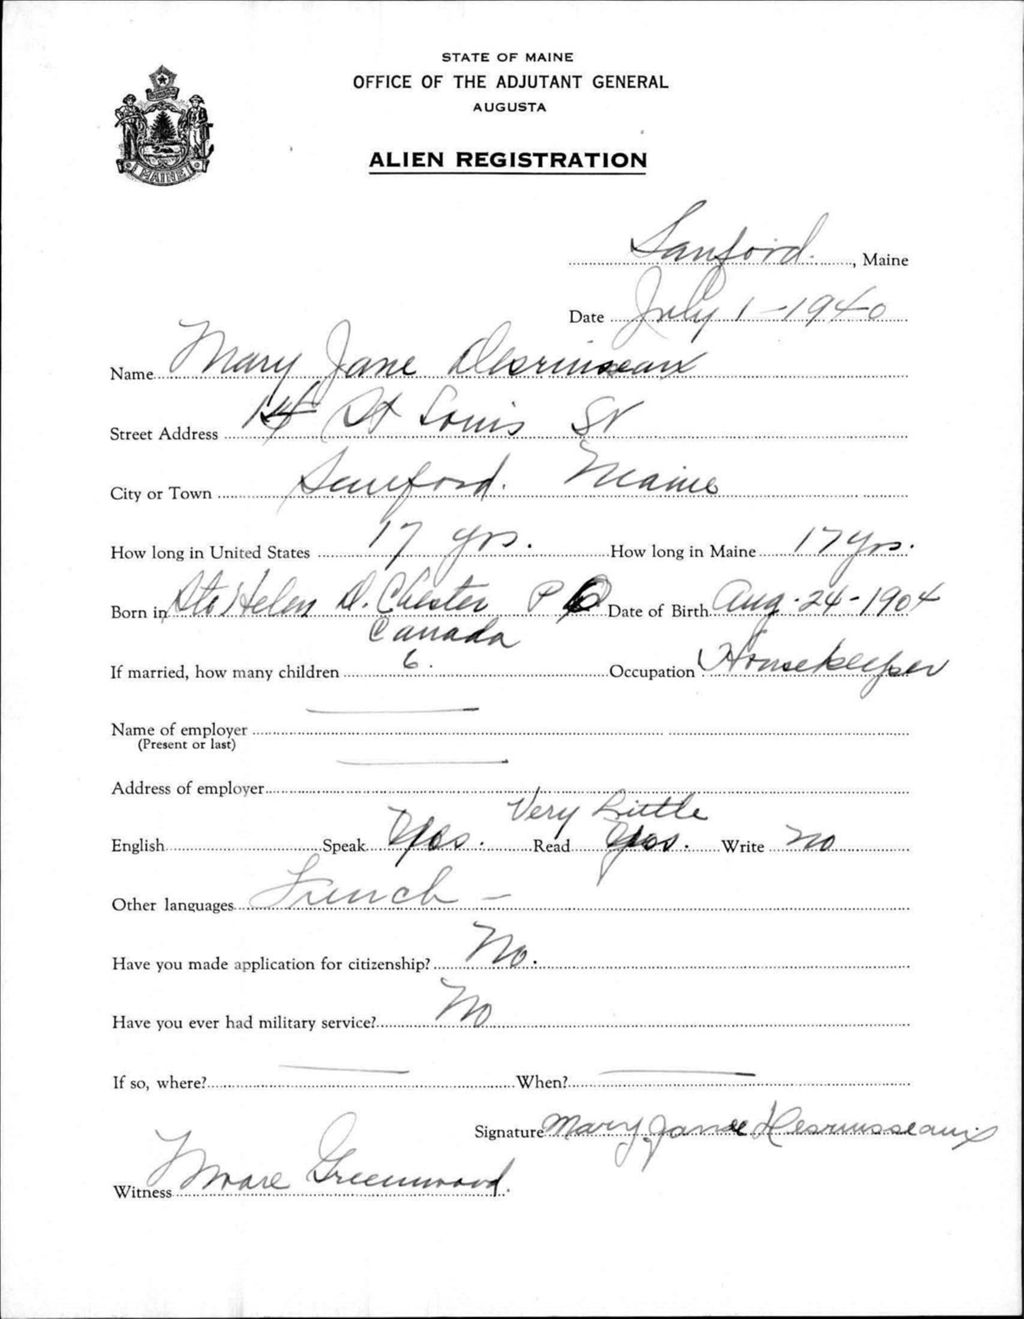 STATE OF MAINE
OFFICE OF THE ADJUTANT GENERAL
AUGUSTA
MAINE
ALIEN REGISTRATION
Sanford, Maine
Date July 1-1940
Name Mary Jane Desruisseaux
Street Address 14 St Louis St
City or Town Sanford. Maine
How long in United States 17 yrs. How long in Maine 17 yrs.
Born in Ste Helen D. Chester P Q Date of Birth Aug. 24-1904
Canada
If married, how many children 6. Occupation Housekeeper
Name of employer
(Present or last)
Address of employer
Very Little
English Speak Yes. Read Yes. Write No
Other languages French -
Have you made application for citizenship? No.
Have you ever had military service? No
If so, where? When?
Signature Mary Jane Desruisseaux
Witness Greenwood.